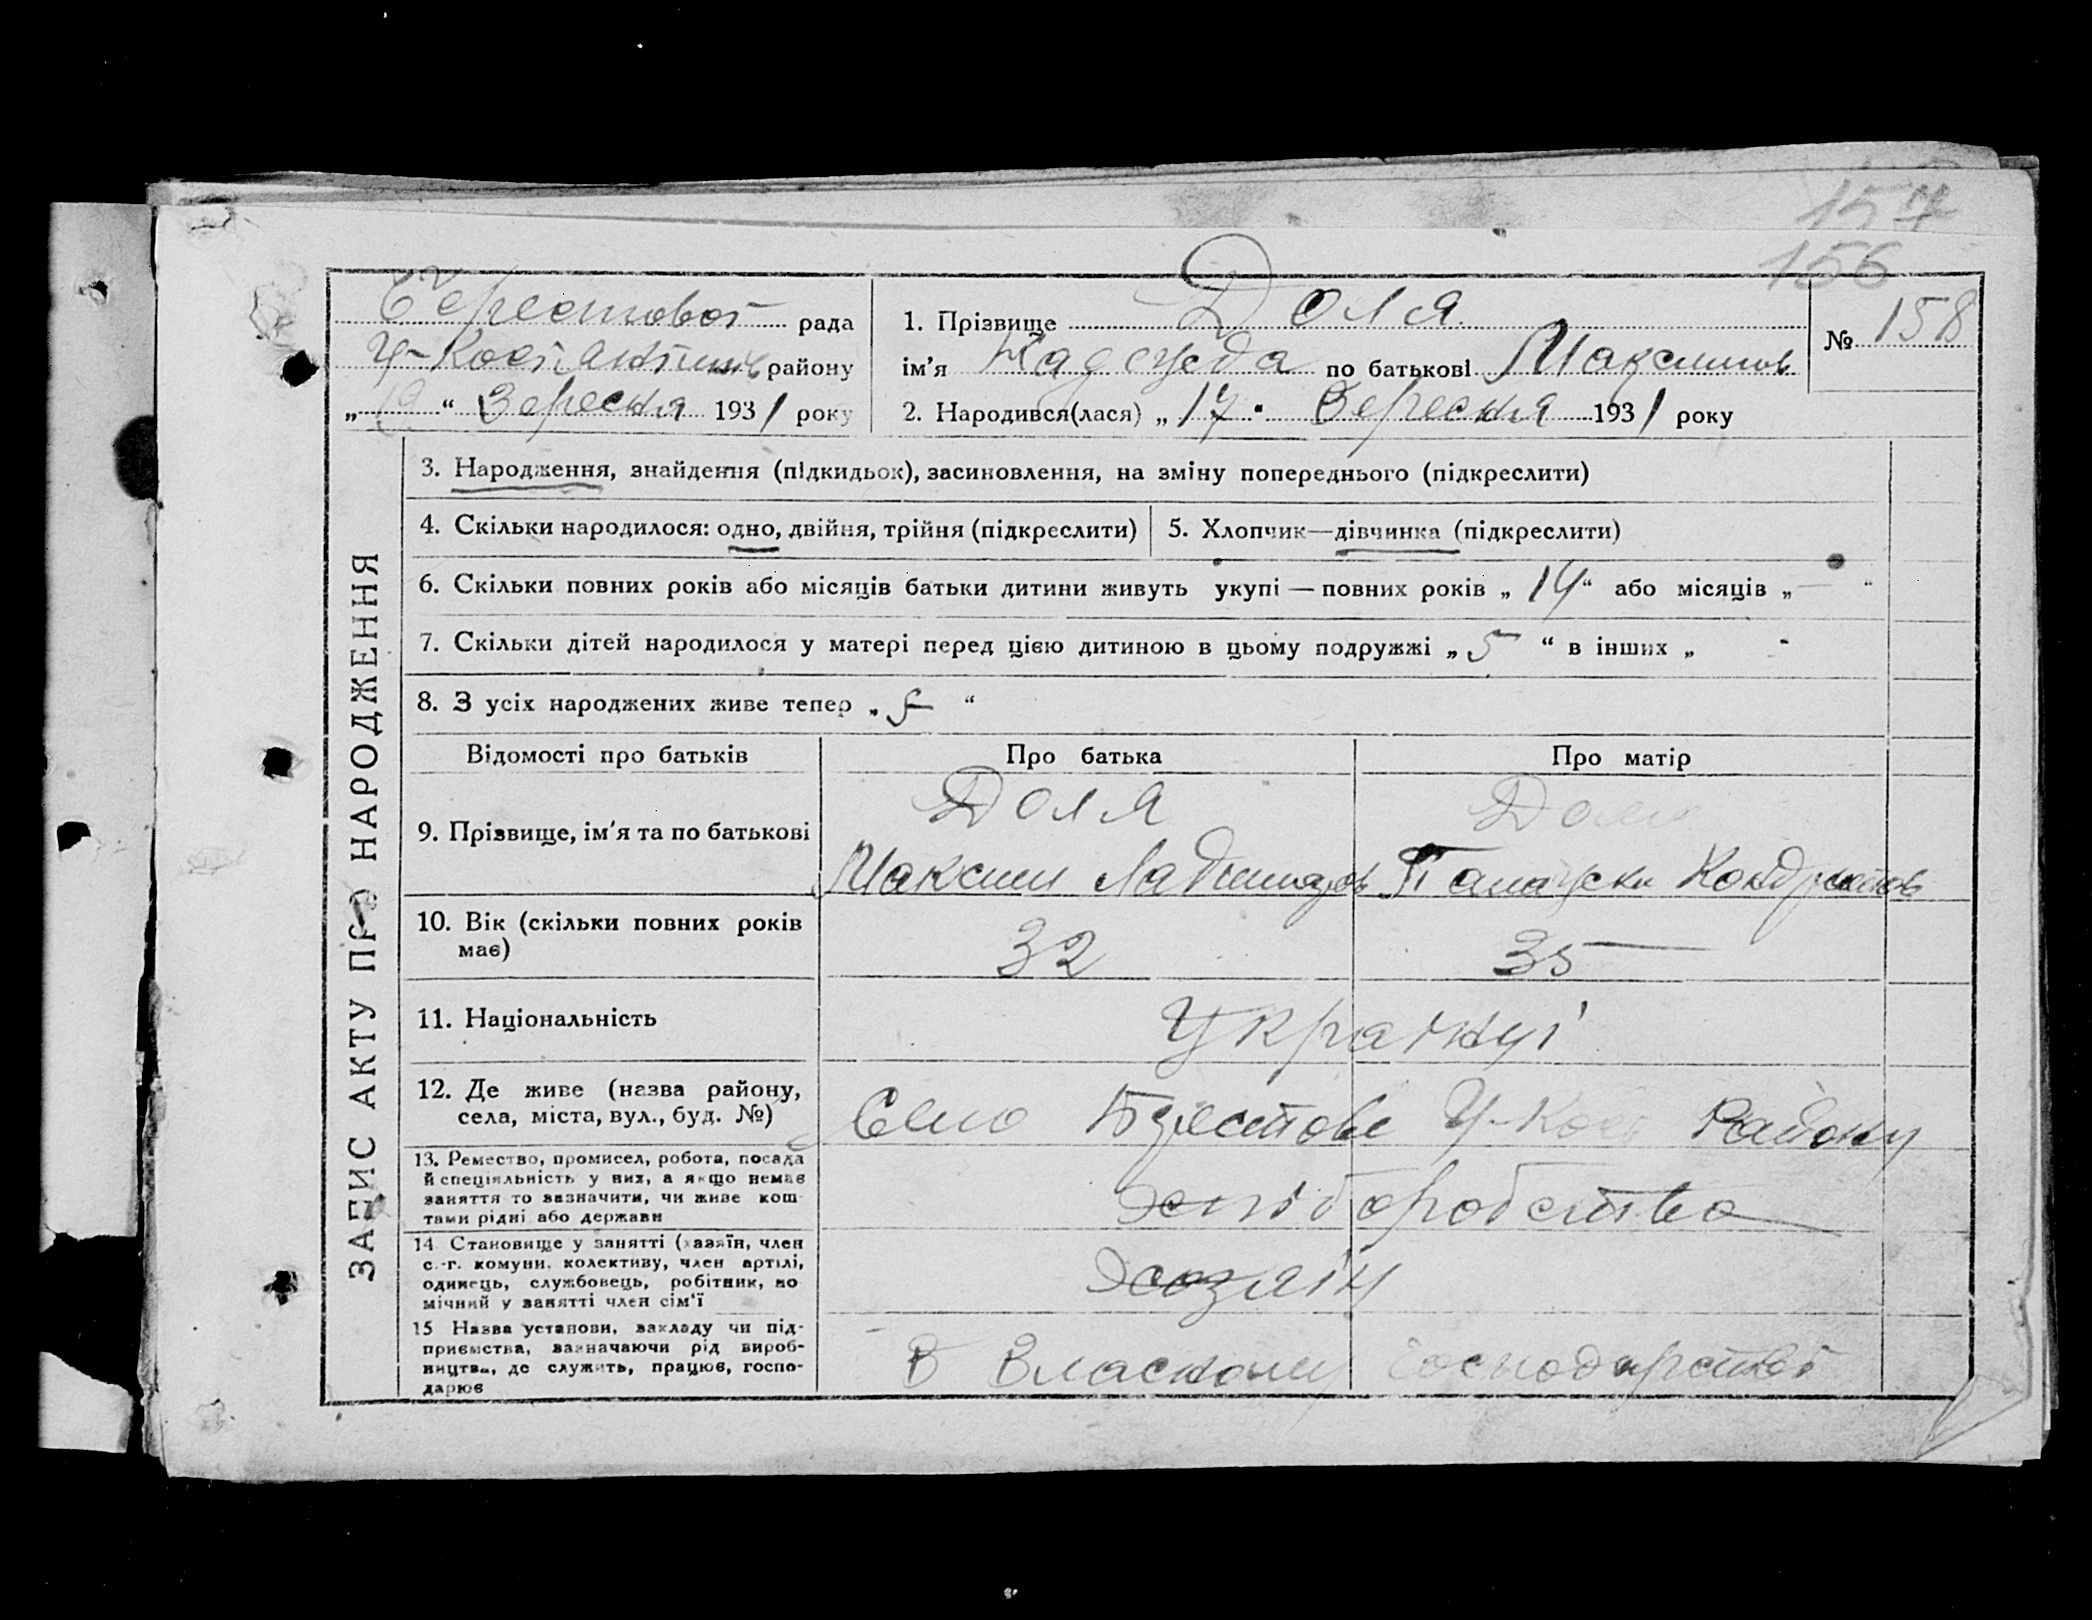 157
156
рада
1. Прізвище Доля
№ 158
району
ім'я по батькові Максимов
„19“ Вересня 1931 року
2. Народився(лася) „17“ Вересня 1931 року
ЗАПИС АКТУ ПРО НАРОДЖЕННЯ
3. Народження, знайдення (підкидьок), засиновлення, на зміну попереднього (підкреслити)
4. Скільки народилося: одно, двійня, трійня (підкреслити)
5. Хлопчик—дівчинка (підкреслити)
6. Скільки повних років або місяців батьки дитини живуть укупі — повних років „14“ або місяців „—“
7. Скільки дітей народилося у матері перед цією дитиною в цьому подружжі „5“ в інших „ -
8. З усіх народжених живе тепер „5“
Відомості про батьків
Про батька
Про матір
9. Прізвище, ім'я та по батькові
Доля
Доля
Максим
Кондратов
10. Вік (скільки повних років
має)
32
35
11. Національність
Українці
12. Де живе (назва району,
села, міста, вул., буд. №)
Село У-Кост Району
13. Ремество, промисел, робота, посада
й спеціяльність у них, а якщо немає
заняття то зазначити, чи живе кош
тами рідні або держави
хліборобство
14 Становище у занятті (хазяїн, член
с.-г. комуни, колективу, член артілі,
одинець, службовець, робітник, по
мічний у занятті член сім'ї
Хозяін
15 Назва установи, закладу чи під-
приємства, зазначаючи рід вироб-
ництва, де служить, працює, госпо-
дарює
В Власному господарстві